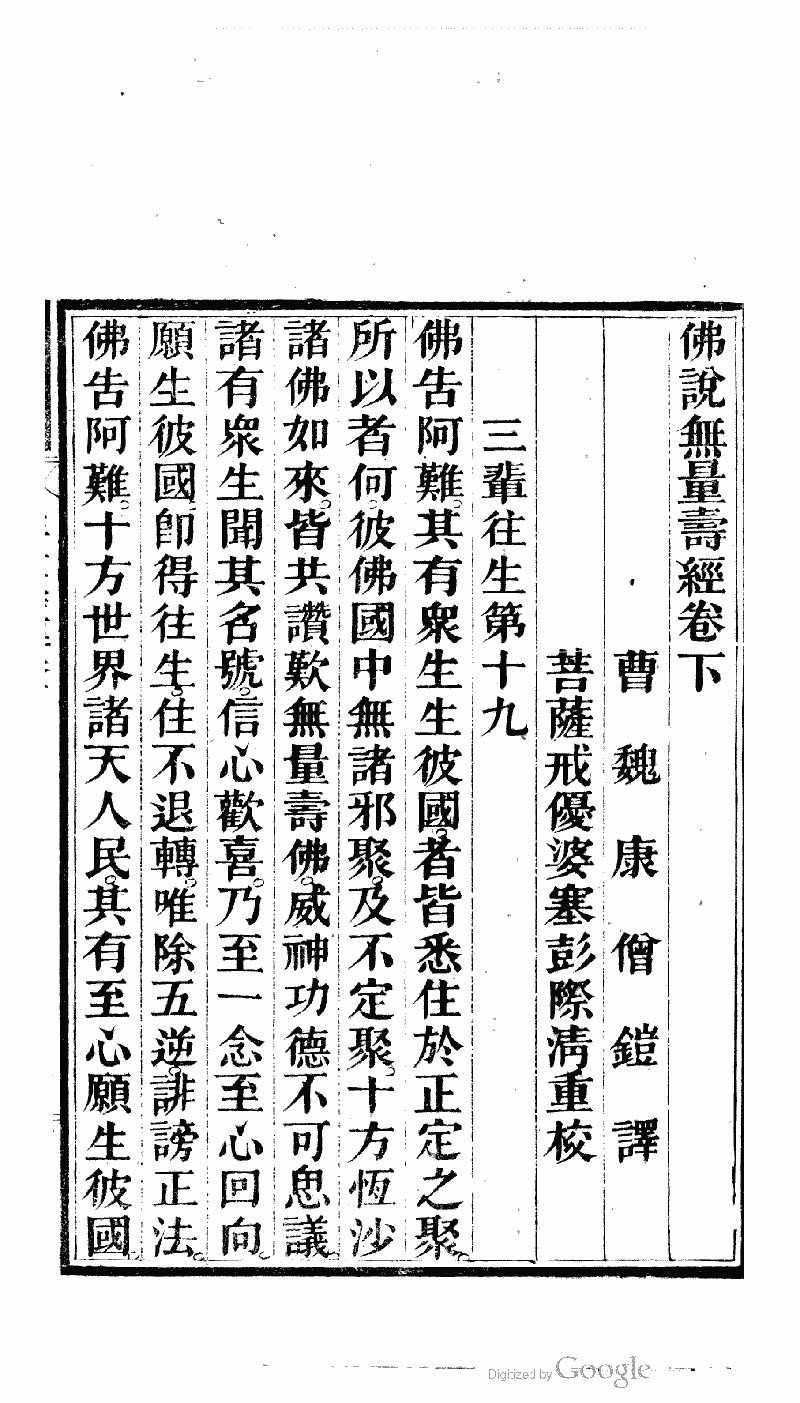 佛說無量壽經卷下
曹魏康僧鎧譯
菩薩戒優婆塞彭際淸重校
三輩往生第十九
佛告阿難。其有衆生生彼國者。皆悉住於正定之聚。
所以者何。彼佛國中無諸邪聚。及不定聚。十方恆沙
諸佛如來。皆共讚歎無量壽佛。威神功德不可思議。
諸有衆生聞其名號。信心歡喜。乃至一念至心回向。
願生彼國。卽得往生。住不退轉。唯除五逆。誹謗正法。
佛告阿難。十方世界諸天人民。其有至心願生彼國。
Digitized by Google